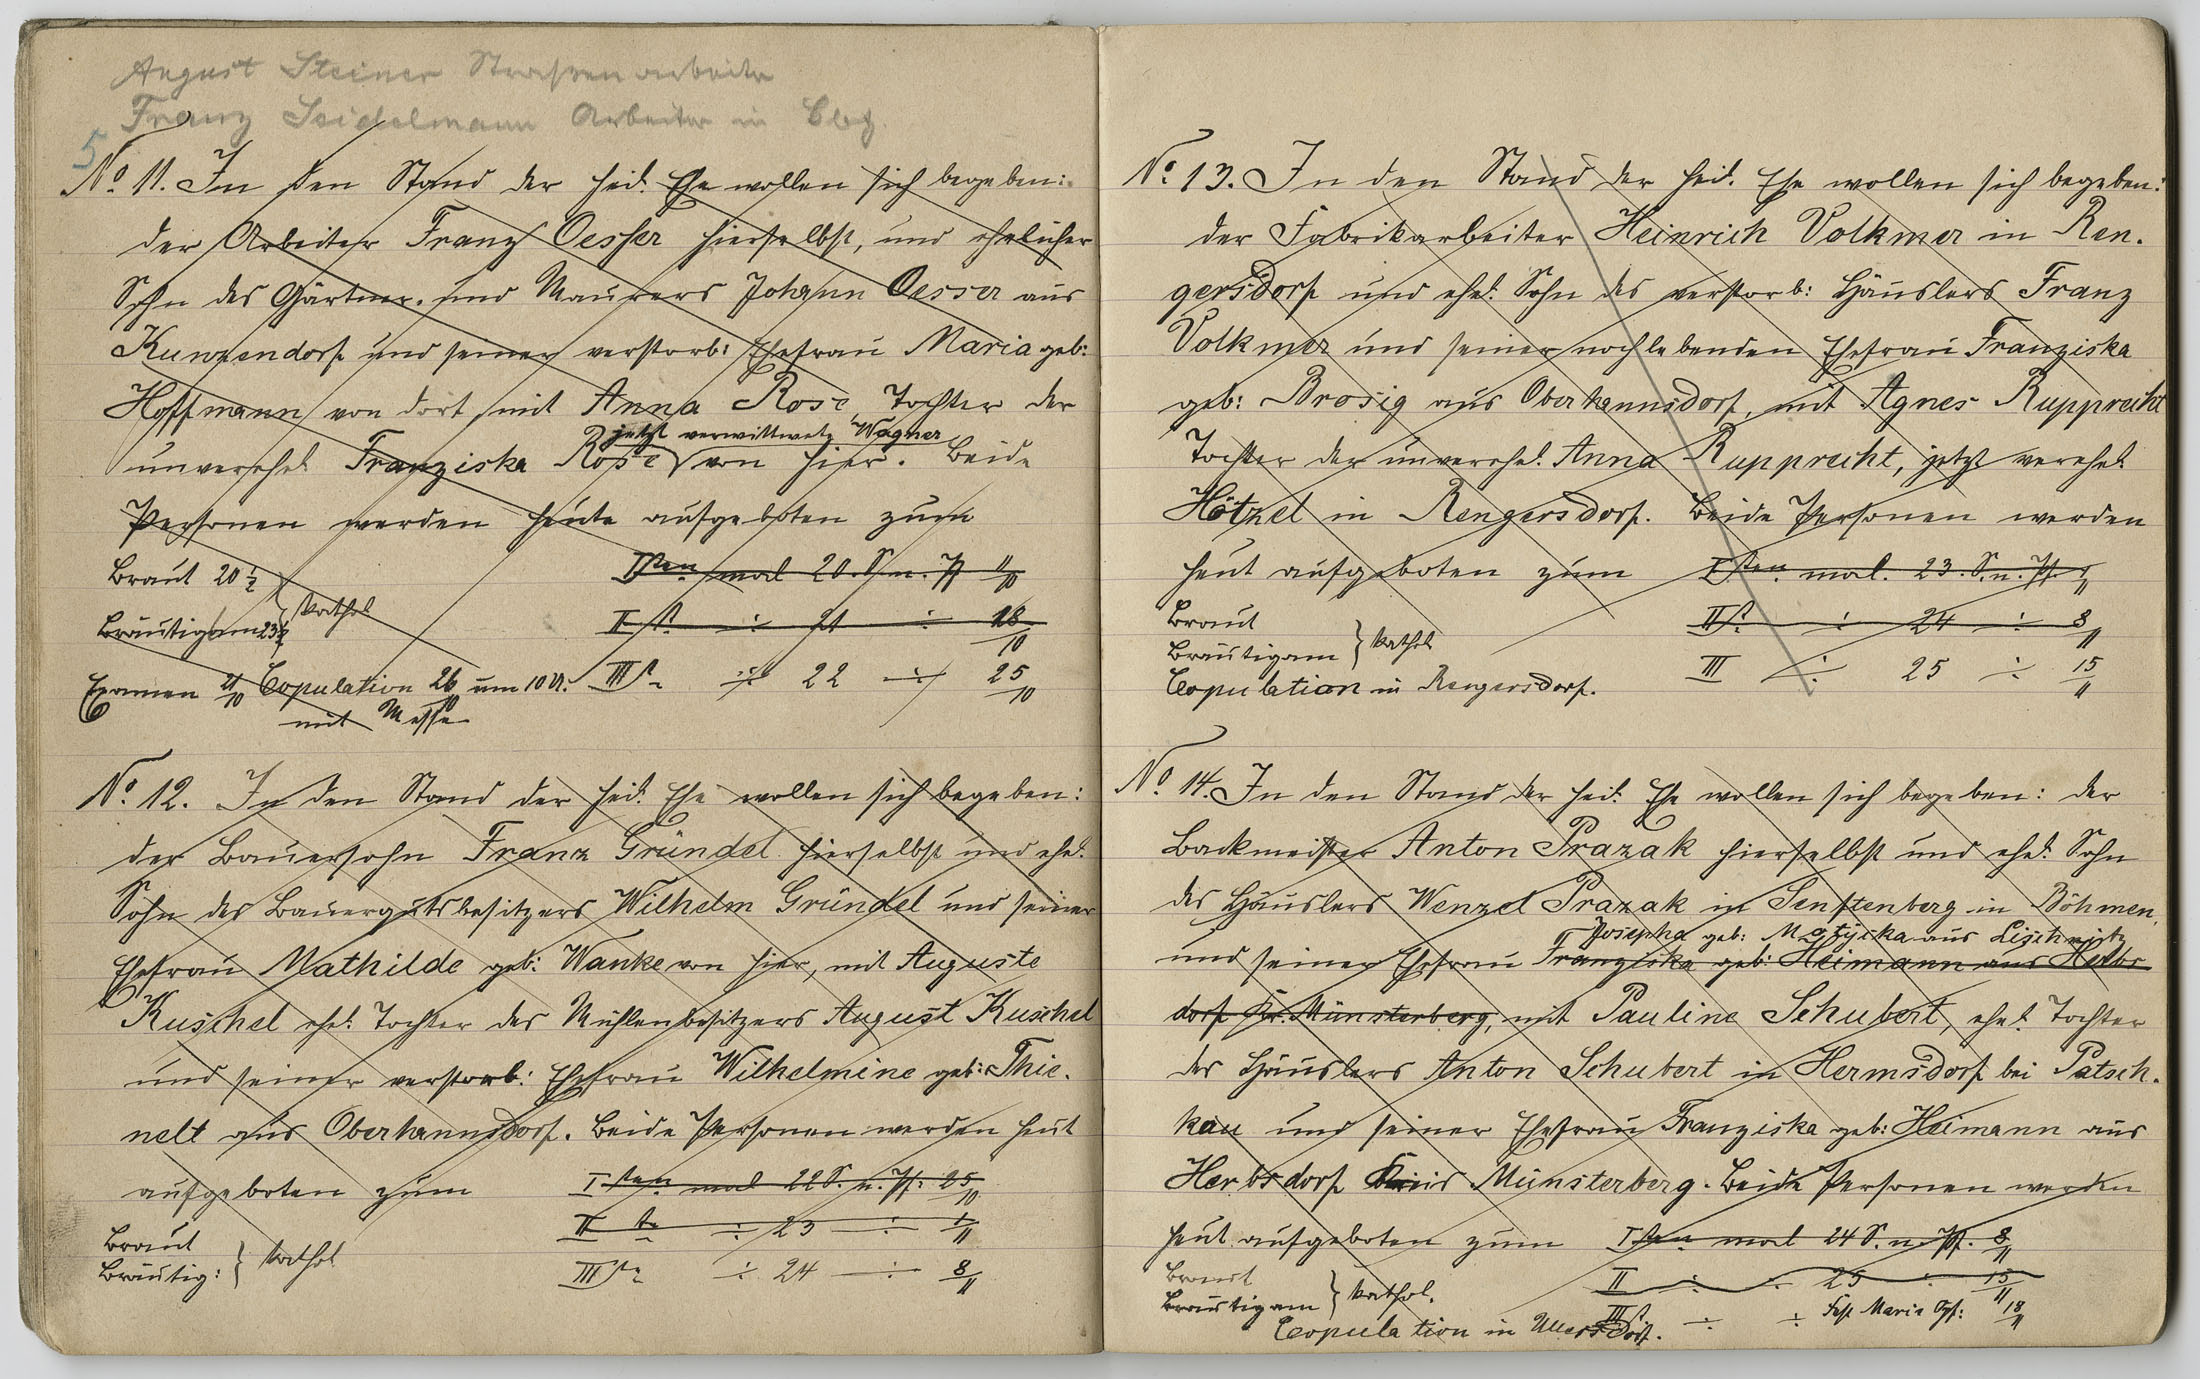 August Steiner Straßenarbeiter
Franz Seidelmann Arbeiter in
5
No 11. In den Stand der heil. Ehe wollen sich begeben:
der Arbeiter Franz Oesser hierselbst, und ehelicher
Sohn des Gärtner- und Maurers Johann Oesser aus
Kunzendorf und seiner verstorb: Ehefrau Maria geb:
Hoffmann von dort mit Anna Rose, Tochter der
jetzt verwittwete Wagner
unverehel. Franziska Rose von hier. Beide
Personen werden heute aufgeboten zum
Braut 20 1/2
Iten mal 20. S. n. Pf 11/10
Bräutigam 23 1/2 } kathol
II t. ÷ 21 ÷ 18/10
Examen 21/10 Copulation 26/10 um 10 U. III t. ÷ 22 ÷ 25/10
mit Messe
No. 12. In den Stand der heil. Ehe wollen sich begeben:
der Bauersohn Franz Gründel hierselbst und ehel.
Sohn des Bauergutsbesitzers Wilhelm Gründel und seiner
Ehefrau Mathilde geb: Wanke von hier, mit Auguste
Kuschel ehel. Tochter des Mühlenbesitzers August Kuschel
und seiner verstorb: Ehefrau Wilhelmine geb: Thie-
nelt aus Oberhannsdorf. Beide Personen werden heut
aufgeboten zum I ten mal 22 S. n. Pf: 25/10
Braut
II t. ÷ 23 ÷ 1/11
Bräutig: } kathol
III t. ÷ 24 ÷ 8/11
No. 13. In den Stand der heil. Ehe wollen sich begeben:
der Fabrikarbeiter Heinrich Volkmer in Ren-
gersdorf und ehel. Sohn des verstorb: Häuslers Franz
Volkmer und seiner noch lebenden Ehefrau Franziska
geb: Brosig aus Oberhannsdorf, mit Agnes Rupprecht
Tochter der unverehel. Anna Rupprecht, jetzt verehel.
Hötzel in Rengersdorf. Beide Personen werden
heut aufgeboten zum I ten mal. 23. S. n. Pf. 1/11
Braut
II t. ÷ 24 ÷ 8/11
Bräutigam } kathol
III ÷ 25 ÷ 15/11
Copulation in Rengersdorf.
No. 14. In den Stand der heil. Ehe wollen sich begeben: der
Backmeister Anton Prazak hierselbst und ehel. Sohn
des Häuslers Wenzel Prazak in Senftenberg in Böhmen,
Josepha geb: Motyska aus
und seiner Ehefrau Franziska geb: Heimann aus Herbs
dorf Kr. Münsterberg, mit Pauline Schubert, ehel. Tochter
des Häuslers Anton Schubert in Hermsdorf bei Patsch-
kau und seiner Ehefrau Franziska geb: Heimann aus
Herbsdorf Kreis Münsterberg. Beide Personen werden
heut aufgeboten zum I ten mal 24 S. n. Pf. 8/11
Braut
II ÷ 25 ÷ 15/11
Bräutigam } kathol.
III t. ÷ ÷ Fest Mariä Opf: 18/11
Copulation in Ullersdorf.